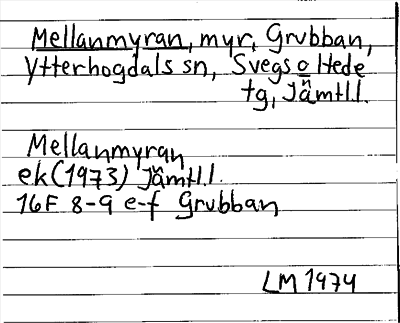 Mellanmyran, myr, Grubban,
Ytterhogdals sn, Svegs o Hede
tg, Jämtl.l.
Mellanmyran
ek (1973) Jämtl.l.
16F 8-9 e-f Grubban
LM 1974